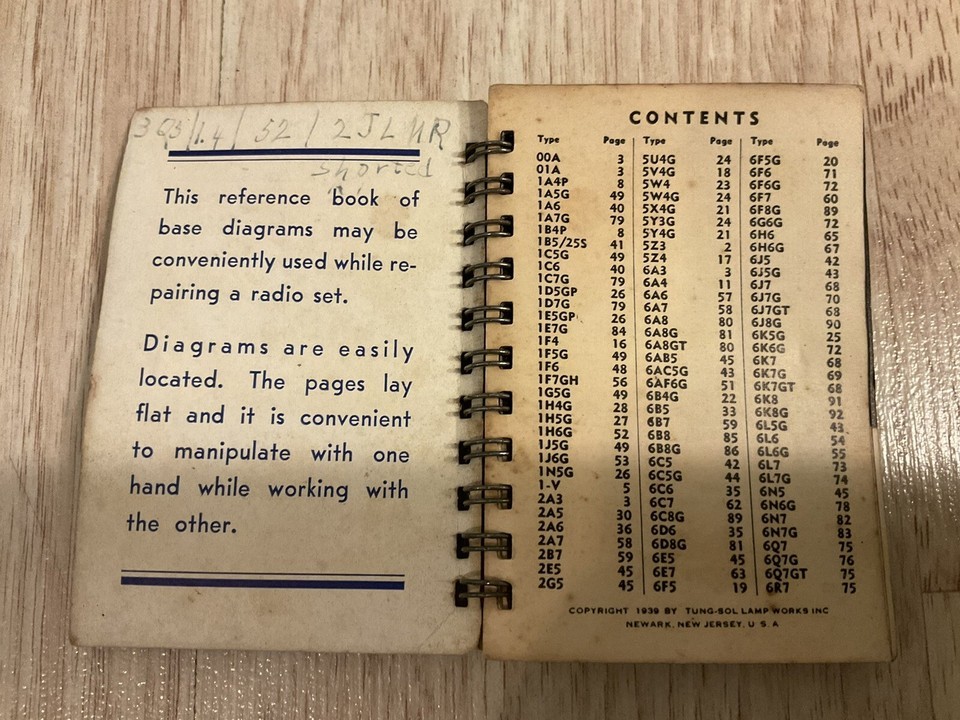 3Q5/1.4/ 52 / 2JL NR
shorted
This reference book of
base diagrams may be
conveniently used while re-
pairing a radio set.
Diagrams are easily
located. The pages lay
flat and it is convenient
to manipulate with one
hand while working with
the other.
CONTENTS
Type Page Type Page Type Page
00A 3 5U4G 24 6F5G 20
01A 3 5V4G 18 6F6 71
1A4P 8 5W4 23 6F6G 72
1A5G 49 5W4G 24 6F7 60
1A6 40 5X4G 21 6F8G 89
1A7G 79 5Y3G 24 6G6G 72
1B4P 8 5Y4G 21 6H6 65
1B5/25S 41 5Z3 2 6H6G 67
1C5G 49 5Z4 17 6J5 42
1C6 40 6A3 3 6J5G 43
1C7G 79 6A4 11 6J7 68
1D5GP 26 6A6 57 6J7G 70
1D7G 79 6A7 58 6J7GT 68
1E5GP 26 6A8 80 6J8G 90
1E7G 84 6A8G 81 6K5G 25
1F4 16 6A8GT 80 6K6G 72
1F5G 49 6AB5 45 6K7 68
1F6 48 6AC5G 43 6K7G 69
1F7GH 56 6AF6G 51 6K7GT 68
1G5G 49 6B4G 22 6K8 91
1H4G 28 6B5 33 6K8G 92
1H5G 27 6B7 59 6L5G 43
1H6G 52 6B8 85 6L6 54
1J5G 49 6B8G 86 6L6G 55
1J6G 53 6C5 42 6L7 73
1N5G 26 6C5G 44 6L7G 74
1-V 5 6C6 35 6N5 45
2A3 3 6C7 62 6N6G 78
2A5 30 6C8G 89 6N7 82
2A6 36 6D6 35 6N7G 83
2A7 58 6D8G 81 6Q7 75
2B7 59 6E5 45 6Q7G 76
2E5 45 6E7 63 6Q7GT 75
2G5 45 6F5 19 6R7 75
COPYRIGHT 1939 BY TUNG-SOL LAMP WORKS INC
NEWARK, NEW JERSEY, U. S. A